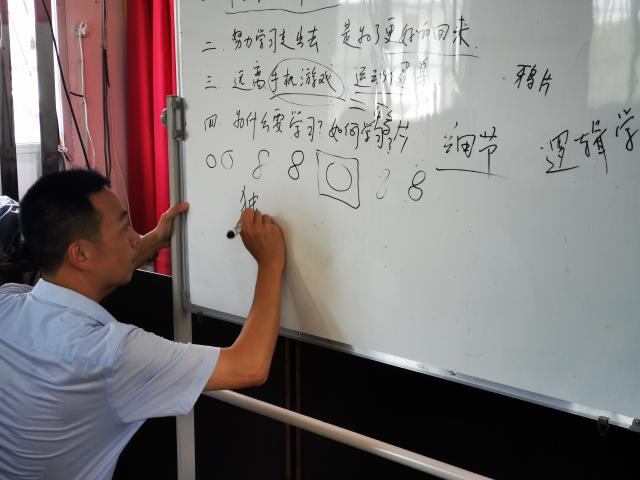 二. 努力学习走出去 是为了更好的回来.
三. 远离手机游戏 鸦片
四. 为什么要学习? 如何学习? 细节 逻辑学
00 8 8 0 8 8
独